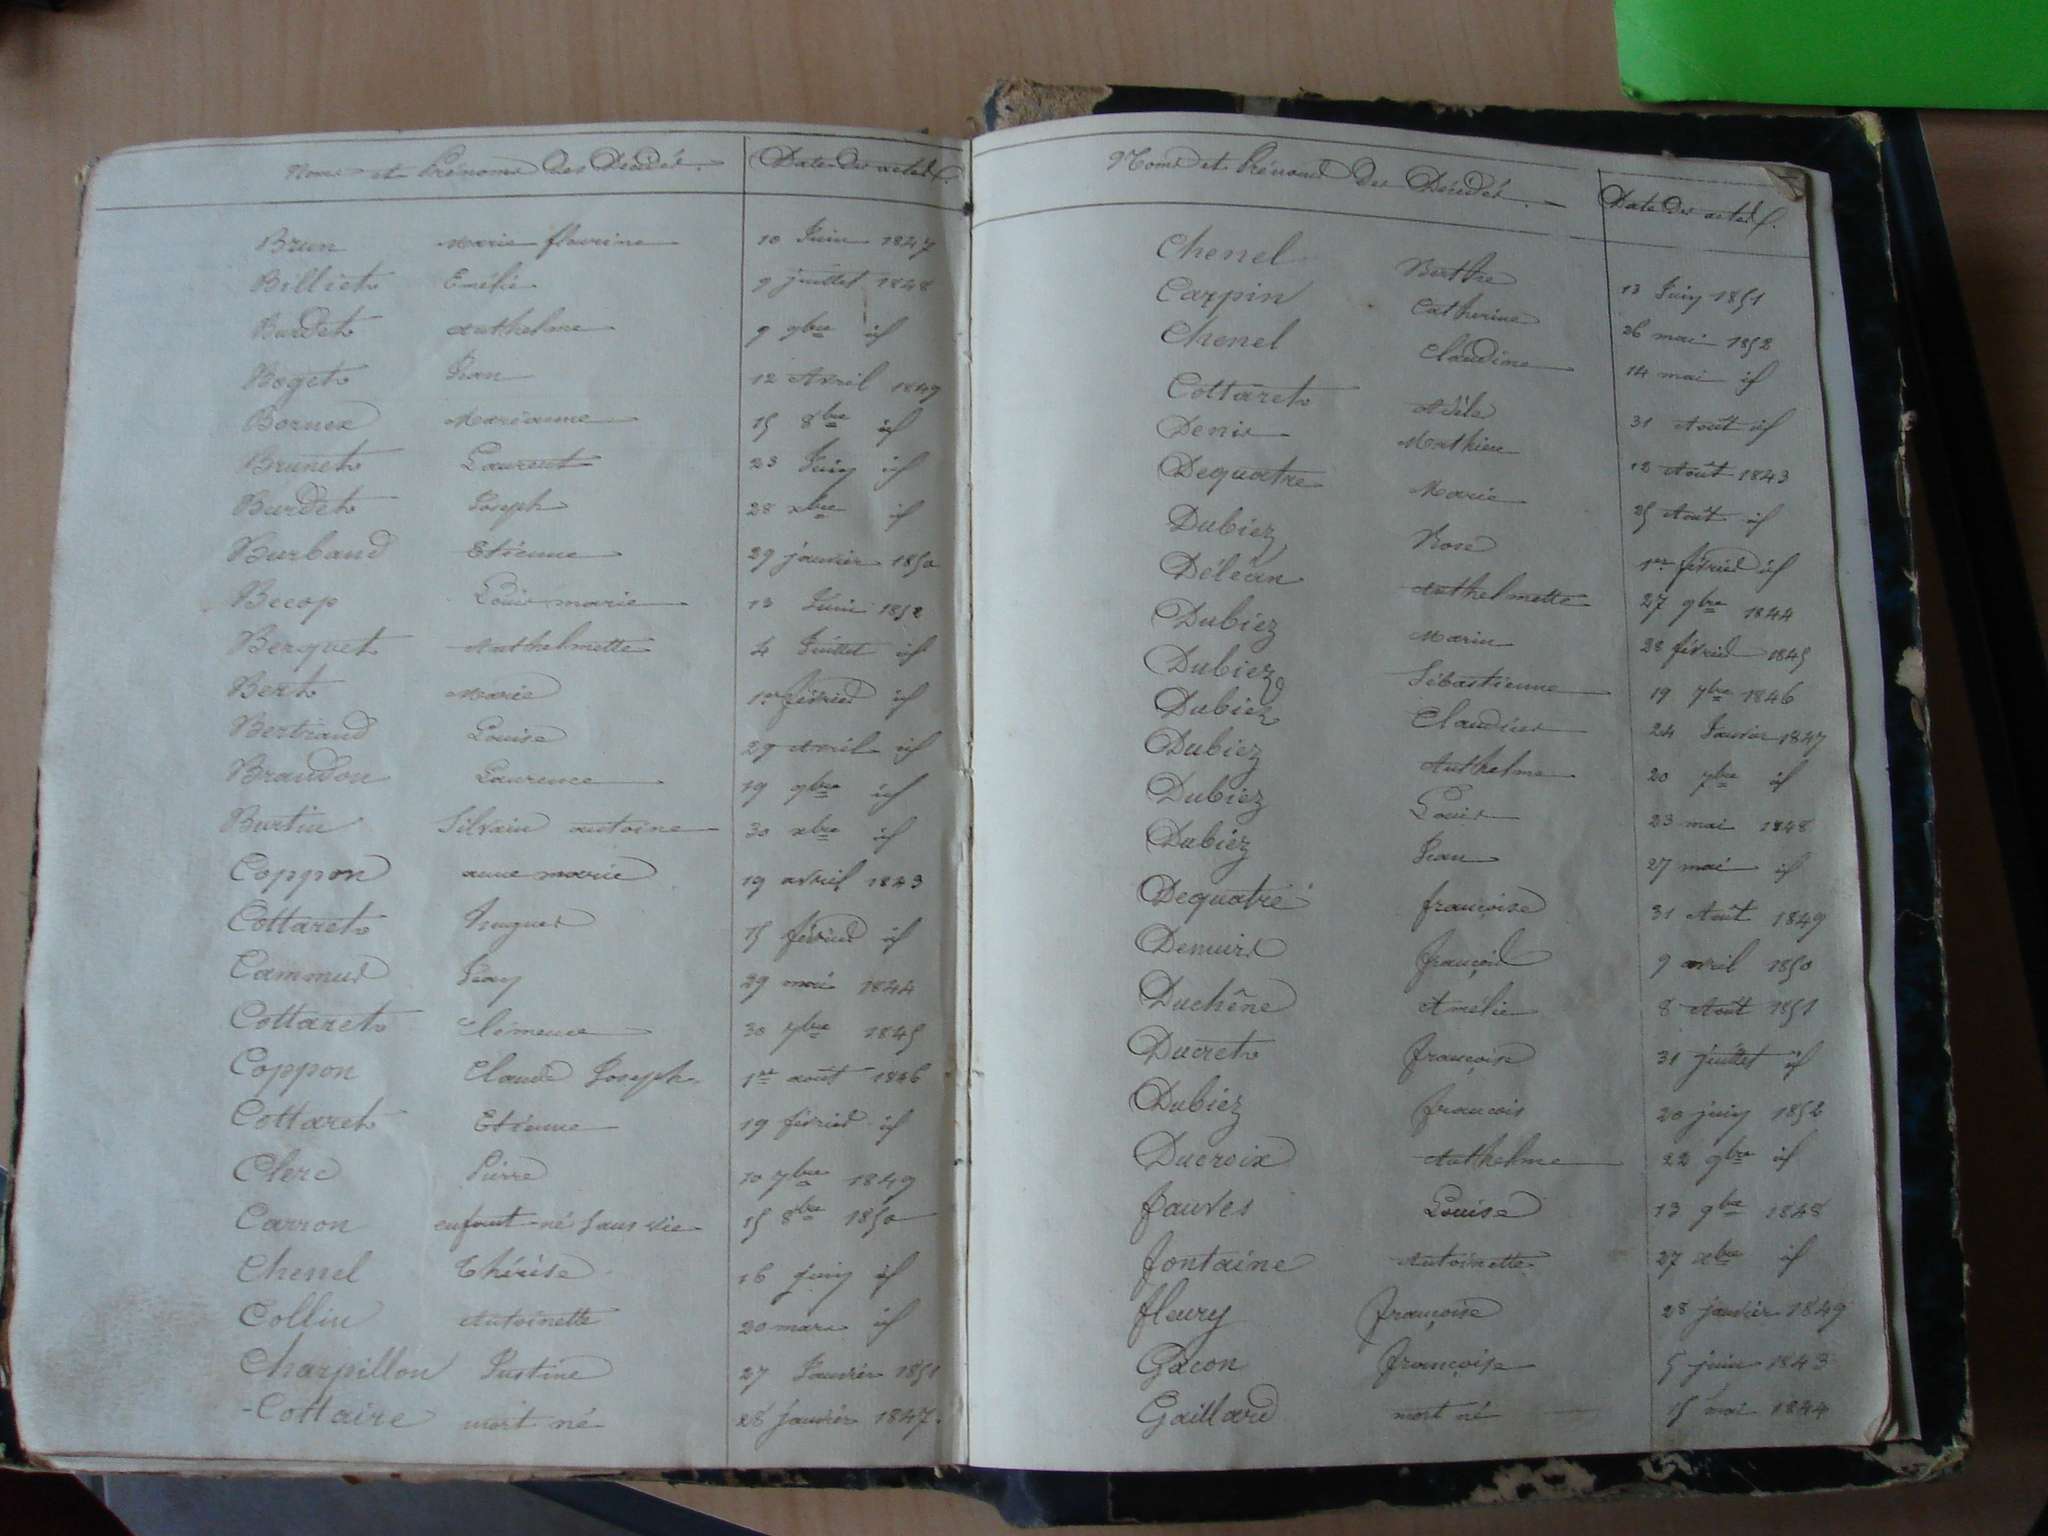 Noms et Prénoms des Décédés. Date des actes.
Brun Marie fleurine 10 Juin 1847
Billiet Emélie 9 juillet 1848
Burdet Anthelme 9 9bre id
Boget Jean 12 Avril 1849
Bornex Marianne 15 8bre id
Brunet Laurent 23 Juin id
Burdet Joseph 28 xbre id
Burbaud Etiénne 29 janvier 1850
Becop Louis marie 13 Juin 1852
Berquet Anthelmette 4 Juillet id
Bert Marie 1er février id
Bertrand Louise 29 Avril id
Braudon Laurence 19 9bre id
Burtin Silvain antoine 30 xbre id
Coppon anne marie 19 avril 1843
Cottaret hugues 15 février id
Cammus Jean 29 mai 1844
Cottaret Clemence 30 7bre 1845
Coppon Claude Joseph 1er août 1846
Cottaret Etienne 19 février id
Clerc Pierre 10 7bre 1849
Carron enfant né sans vie 15 8bre 1850
Chenel Thérèse 16 juin id
Collin Antoinette 20 mars id
Charpillon Justine 27 Janvier 1851
-Cottaire mort né 28 janvier 1847.
Noms et Prénoms des Décédés. Date des actes.
Chenel Berthe 13 Juin 1851
Carpin Catherine 26 mai 1852
Chenel Claudine 14 mai id
Cottaret Adèle 31 Août id
Denis Mathieu 12 Août 1843
Dequatre Marie 25 Août id
Dubiez Rose 1er février id
Déléan Anthelmette 27 9bre 1844
Dubiez Marin 28 février 1845
Dubiez Sébastienne 19 7bre 1846
Dubiez Claudine 24 Janvier 1847
Dubiez Anthelme 20 7bre id
Dubiez Louis 23 mai 1848
Dubiez Jean 27 mai id
Dequatre françoise 31 Août 1849
Demuirs françois 9 avril 1850
Duchêne Amelie 8 Août 1851
Ducret françoise 31 juillet id
Dubiez francois 20 juin 1852
Ducroix Anthelme 22 9bre id
fauvres Louise 13 9bre 1848
fontaine Antoinette 27 xbre id
fleury françoise 28 janvier 1849
Gacon françoise 5 juin 1843
Gaillard mort né 15 mai 1844